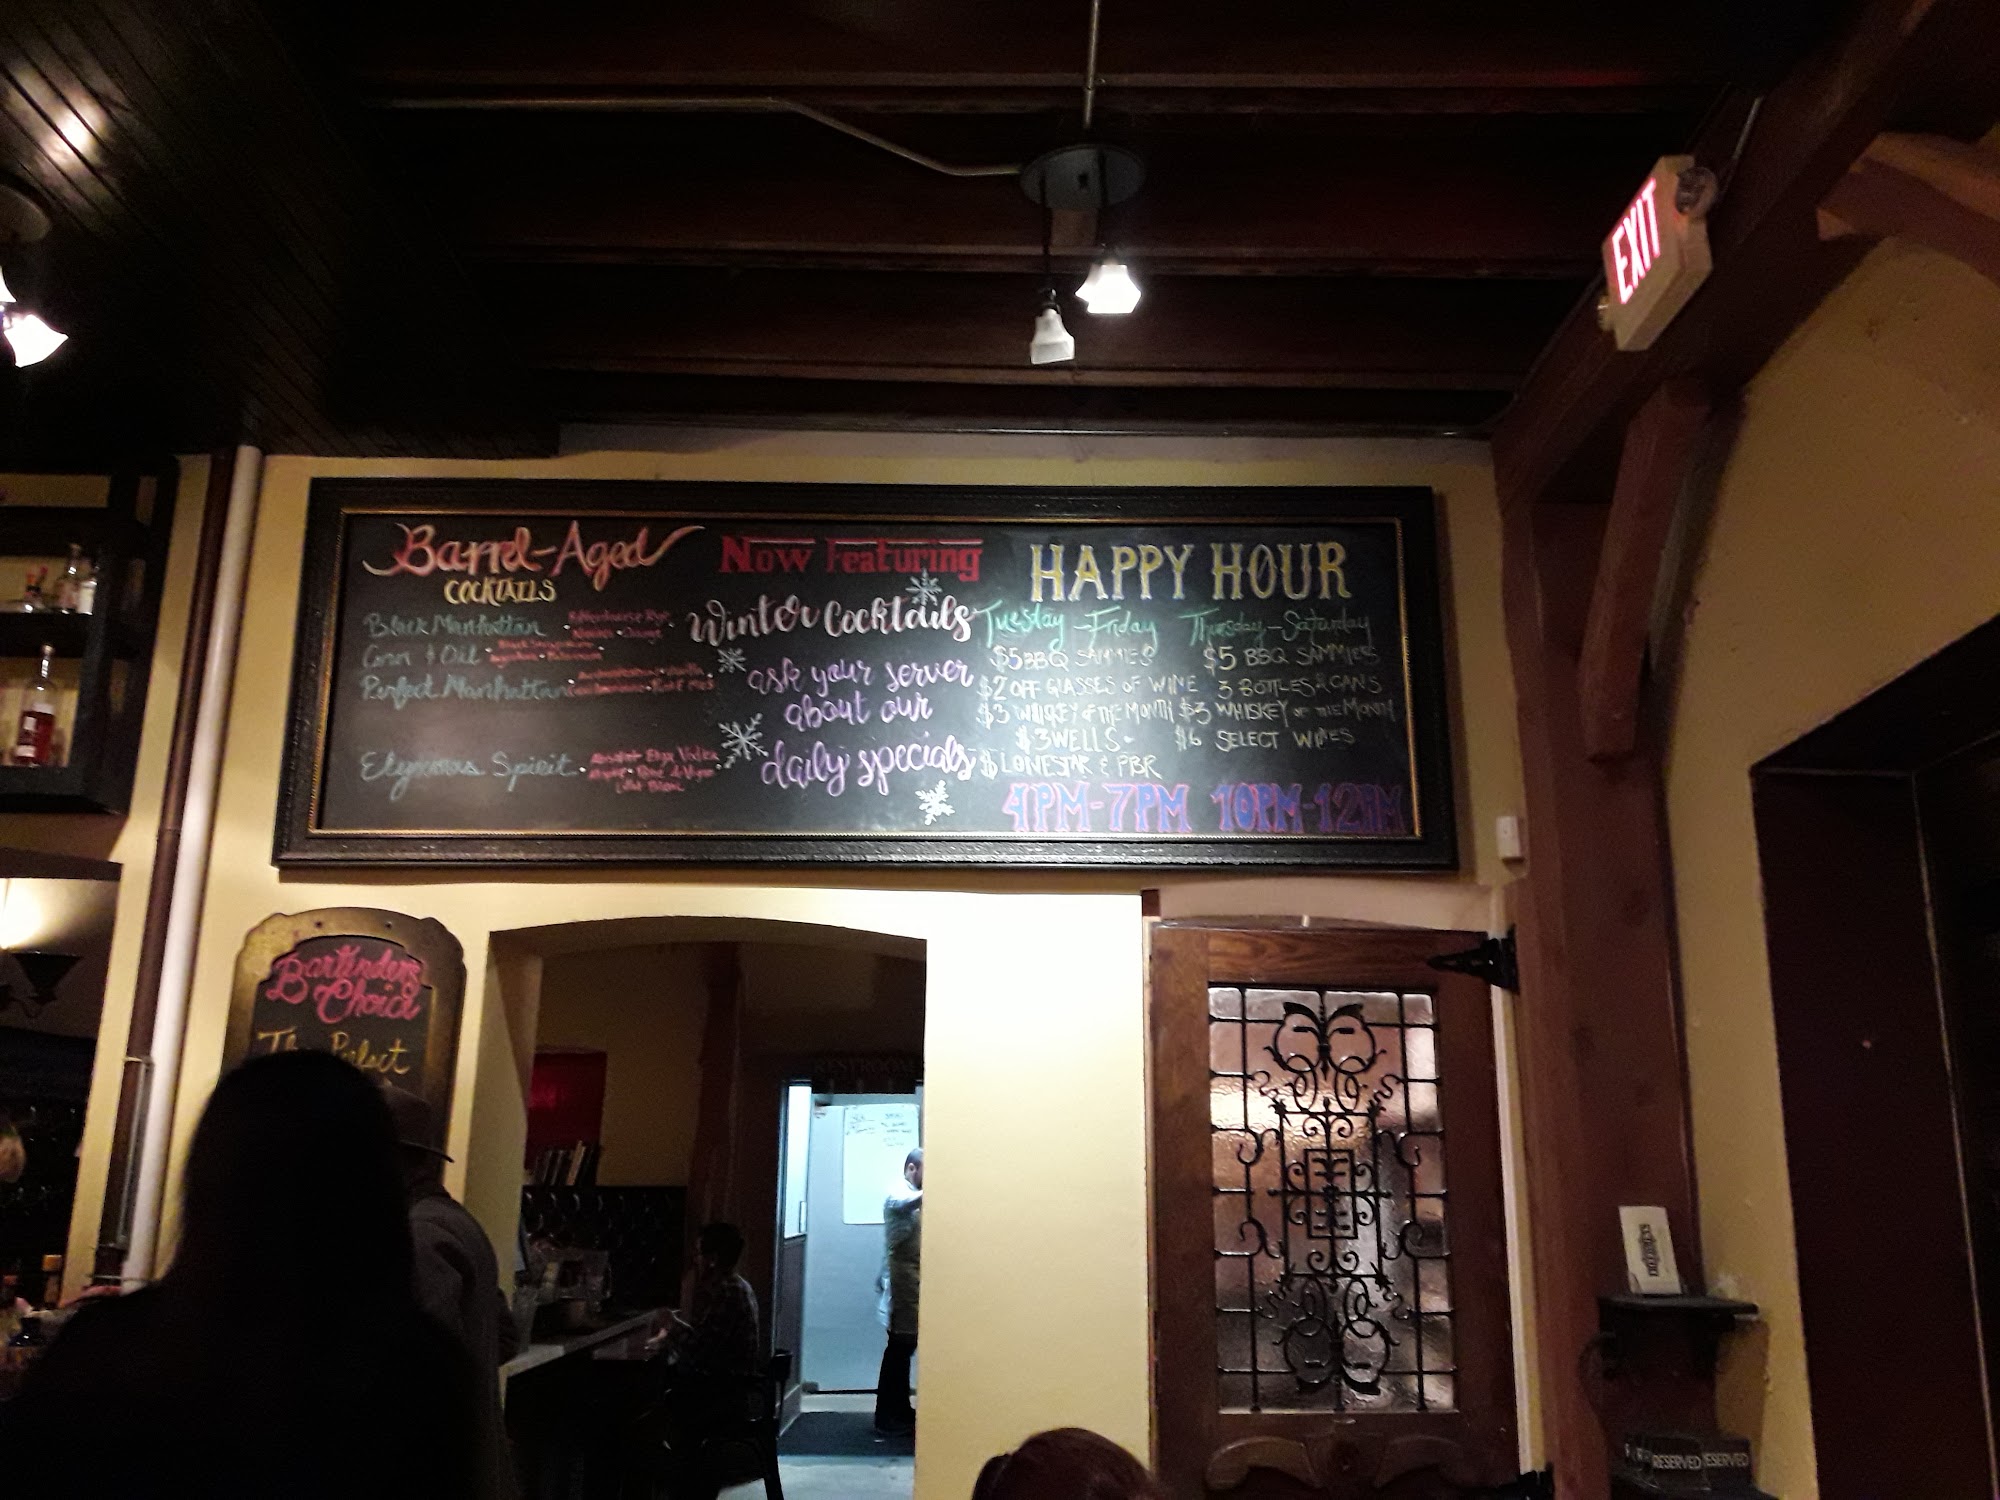 EXIT
Barrel-Aged
COCKTAILS
Black Manhattan
Corn & Oil
Perfect Manhattan
Elysious Spirit
Now Featuring
Winter Cocktails
ask your server
about our
daily specials
HAPPY HOUR
Tuesday-Friday
$5 BBQ SAMMIES
$2 OFF GLASSES OF WINE
$3 WHISKEY OF THE MONTH
$3 WELLS
$ LONESTAR & PBR
4PM-7PM
Thursday-Saturday
$5 BBQ SAMMIES
3 BOTTLES & CANS
$3 WHISKEY OF THE MONTH
$6 SELECT WINES
10PM-12AM
Bartenders
Choice
The Perfect
RESTROOM
RESERVED
RESERVED